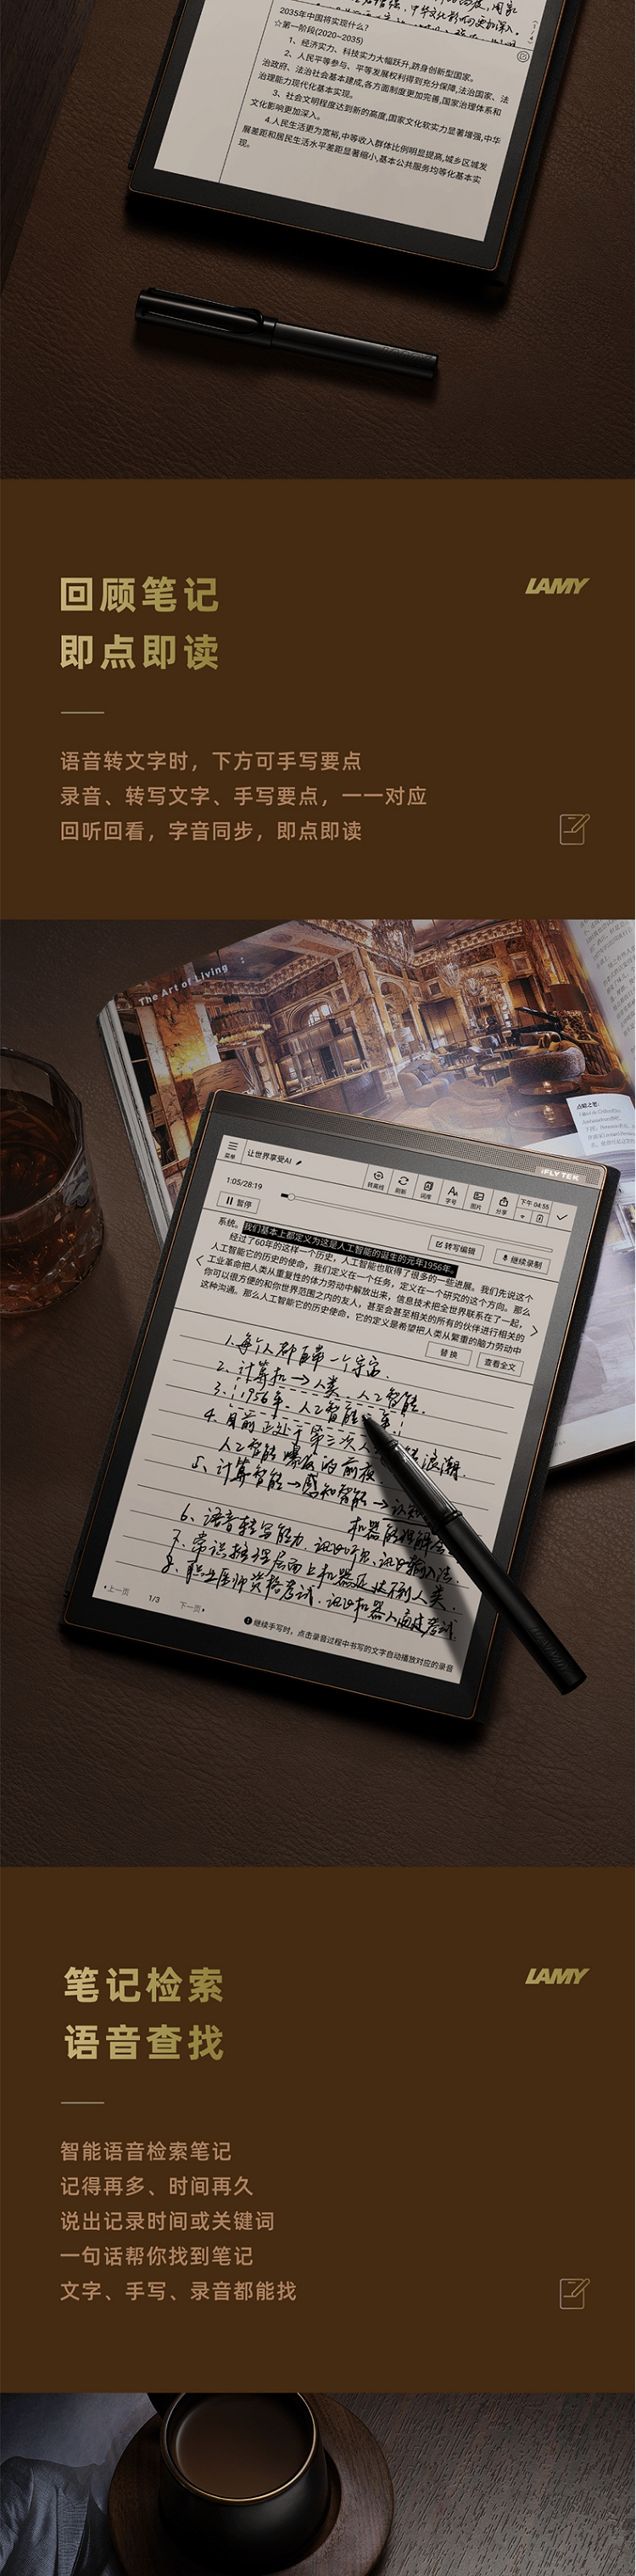 2035年中国将实现什么?
☆第一阶段(2020~2035)
1、经济实力、科技实力大幅跃升,跻身创新型国家。
2、人民平等参与、平等发展权利得到充分保障,法治国家、法
治政府、法治社会基本建成,各方面制度更加完善,国家治理体系和
治理能力现代化基本实现。
3、社会文明程度达到新的高度,国家文化软实力显著增强,中华
文化影响更加深入。
4.人民生活更为宽裕,中等收入群体比例明显提高,城乡区域发
展差距和居民生活水平差距显著缩小,基本公共服务均等化基本实
现。
回顾笔记
LAMY
即点即读
语音转文字时，下方可手写要点
录音、转写文字、手写要点，一一对应
回听回看，字音同步，即点即读
The Art of Living
iFLYTEK
菜单
让世界享受AI
转离线
刷新
词库
字号
图片
分享
下午 04:55
1:05/28:19
暂停
转写编辑
继续录制
系统。我们基本上都定义为这是人工智能的诞生的元年1956年。
经过了60年的这样一个历史，人工智能也取得了很多的一些进展。我们先说这个
人工智能它的历史的使命，我们定义在一个任务，定义在一个研究的这个方向。那么
工业革命把人类从重复性的体力劳动中解放出来，信息技术把全世界联系在了一起，
你可以很方便的和你世界范围之内的友人，甚至会甚至相关的所有的伙伴进行相关的
这种沟通。那么人工智能它的历史使命，它的定义是希望把人类从繁重的脑力劳动中
替换
查看全文
1.每个人都自带一个宇宙.
2.计算机→人类 人工智能.
3.1956年.人工智能元年!
4.目前正处于第三次人
人工智能爆发的前夜
浪潮.
5、计算智能→感知智能→认知
机器能理解会
6、语音转写能力.讯飞听见、讯飞输入法.
7、常识推理层面上机器还达不到人类.
8、职业医师资格考试.讯飞机器人通过考试
上一页
1/3
下一页
继续手写时，点击录音过程中书写的文字自动播放对应的录音
笔记检索
LAMY
语音查找
智能语音检索笔记
记得再多、时间再久
说出记录时间或关键词
一句话帮你找到笔记
文字、手写、录音都能找